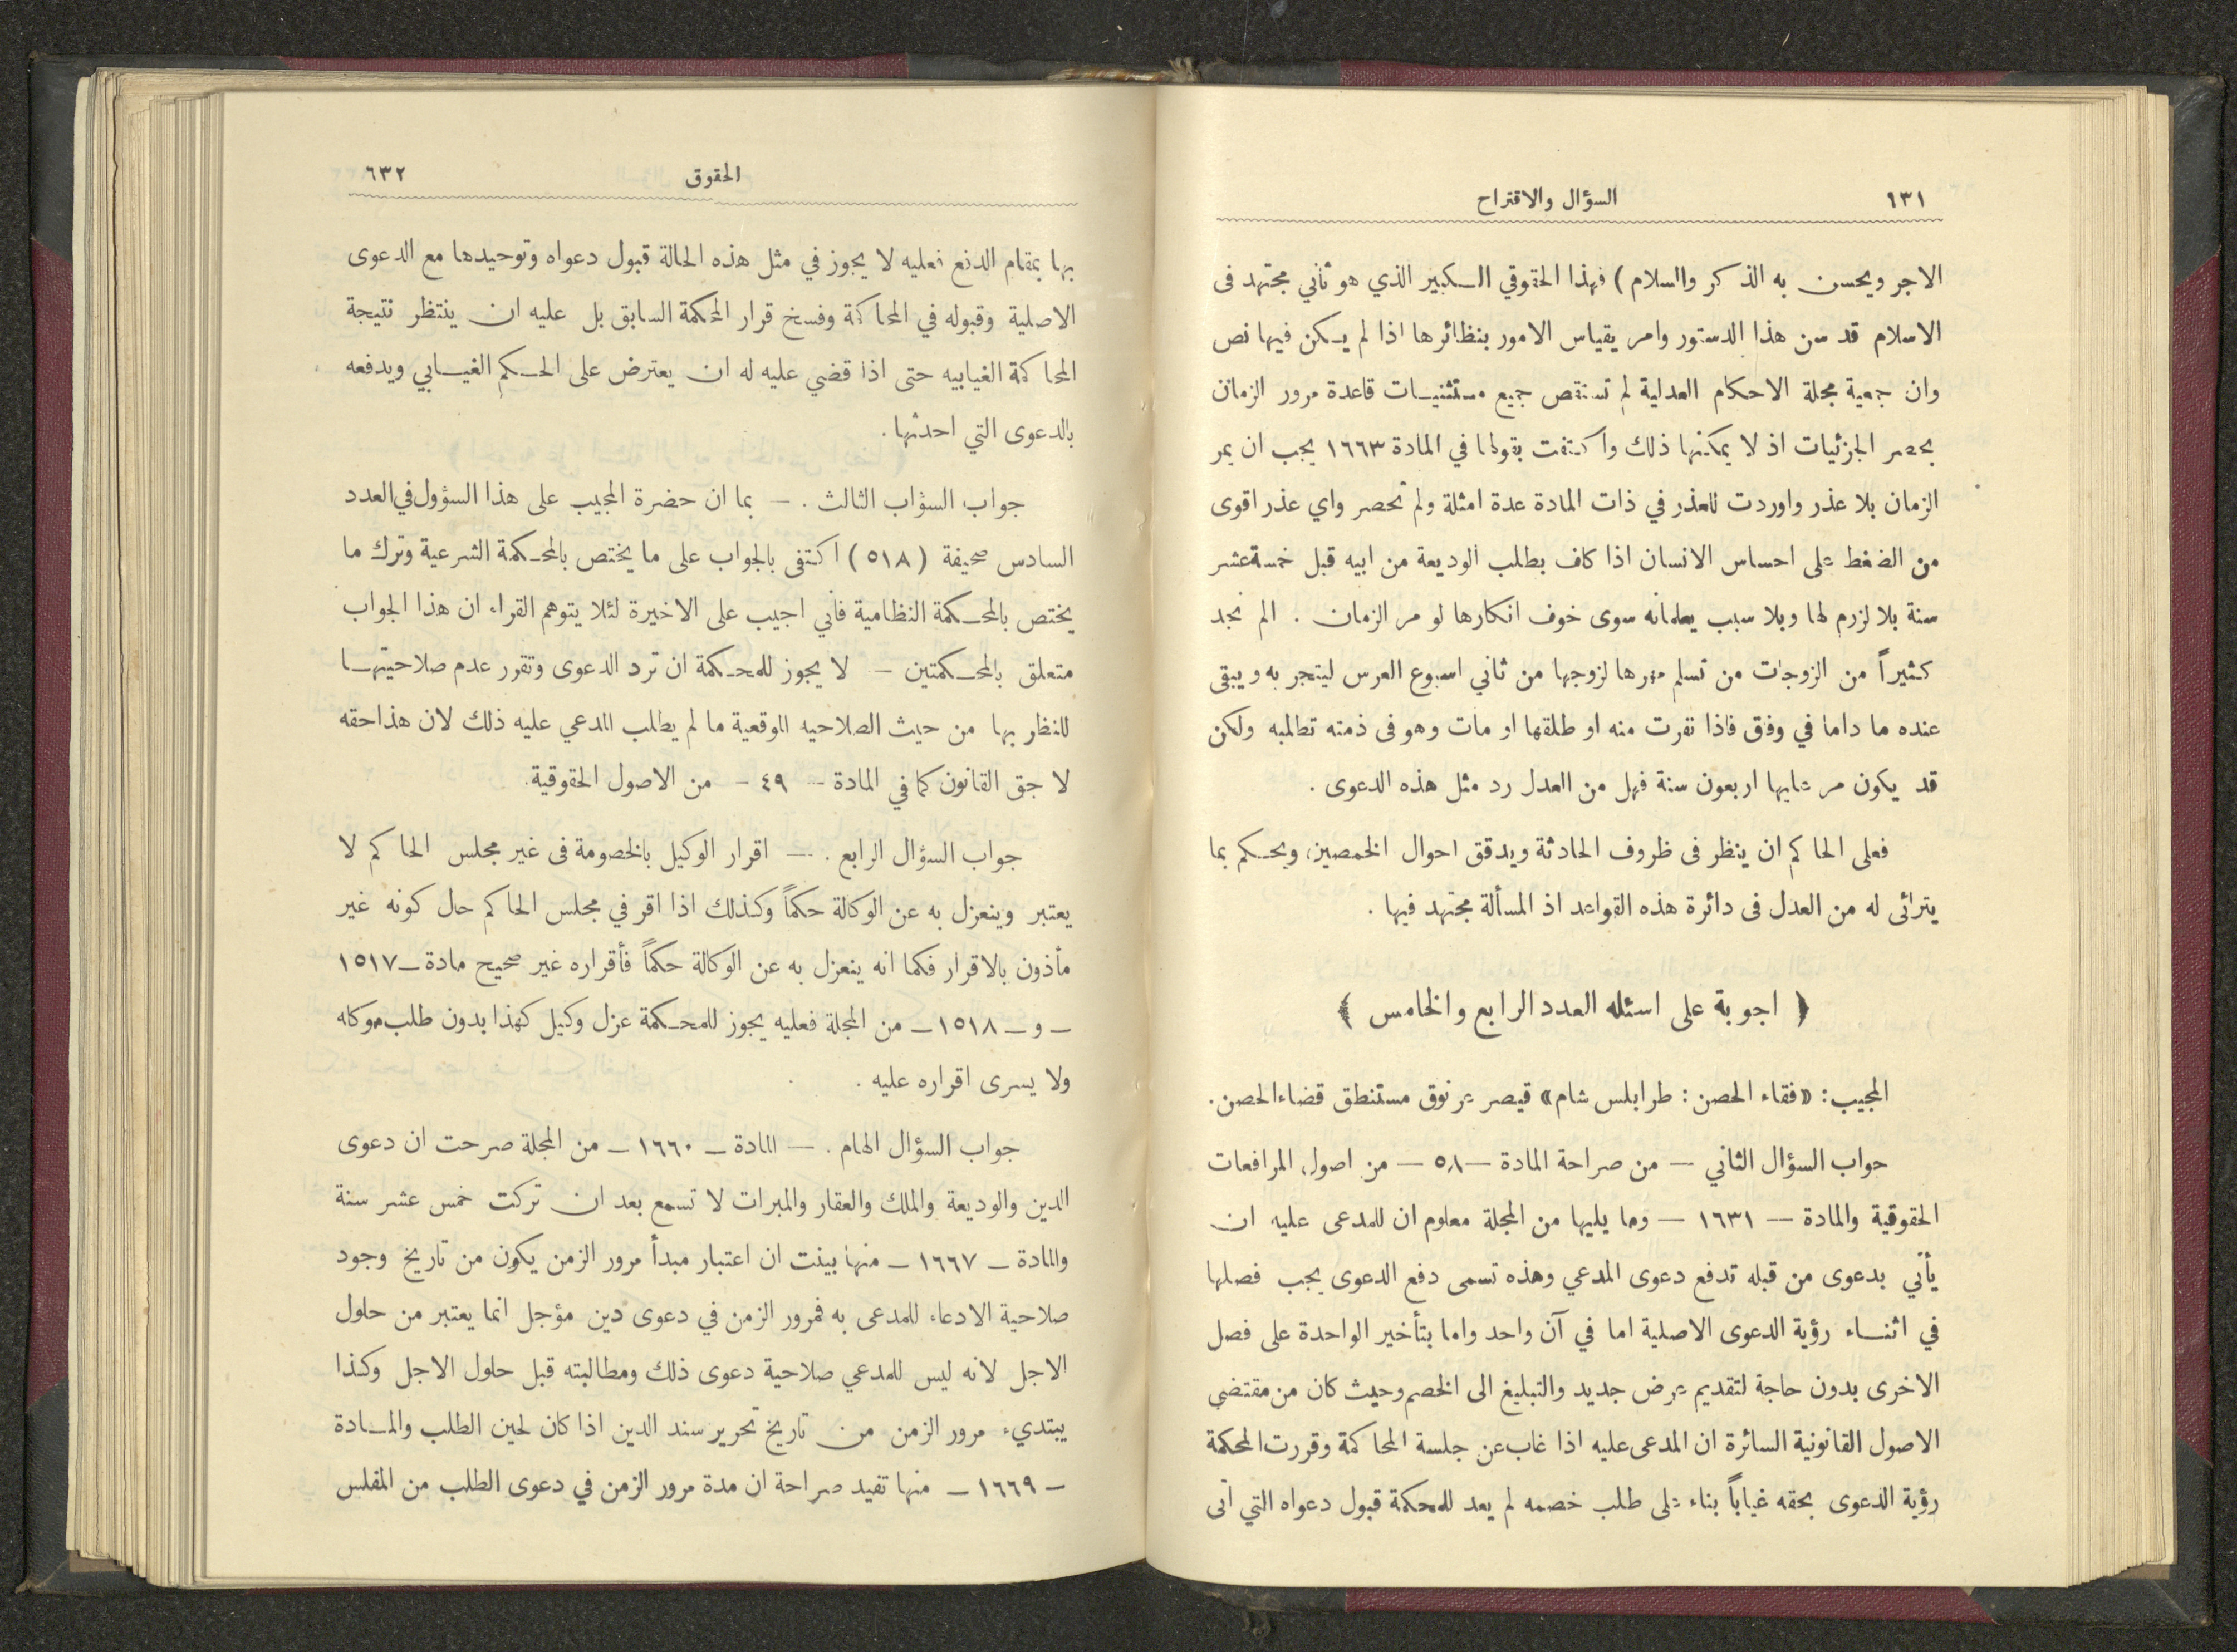 ٦٣١
السؤال والاقتراح
الاجر ويحسن به الذكر والسلام) فهذا الحقوقي الكبير الذي هو ثاني مجتهد فى
الاسلام قد سن هذا الدستور وامر بقياس الامور بنظائرها اذا لم يكن فيها نص
وان جمعية مجلة الاحكام العدلية لم تستقص جميع مستثنيات قاعدة مرور الزمان
بحصر الجزئيات اذ لا يمكنها ذلك واكتفت بقولها في المادة ١٦٦٣ يجب ان يمر
الزمان بلا عذر واوردت للعذر في ذات المادة عدة امثلة ولم تحصر واي عذر اقوى
من الضغط على احساس الانسان اذا كاف بطلب الوديعة من ابيه قبل خمسة عشر
سنة بلا لزوم لها وبلا سبب يعلمانه سوى خوف انكارها لو مر الزمان . الم نجد
كثيراً من الزوجات من تسلم مهرها لزوجها من ثاني اسبوع العرس ليتجر به ويبقى
عنده ما داما في وفق فاذا نفرت منه او طلقها او مات وهو فى ذمته تطالبه ولكن
قد يكون مر عليها اربعون سنة فهل من العدل رد مثل هذه الدعوى .
فعلى الحاكم ان ينظر فى ظروف الحادثة ويدقق احوال الخصمين، ويحكم بما
يترائى له من العدل فى دائرة هذه القواعد اذ المسألة مجتهد فيها .
﴿ اجوبة على اسئله العدد الرابع والخامس ﴾
المجيب : «فقاء الحصن : طرابلس شام» قيصر عرنوق مستنطق قضاء الحصن .
جواب السؤال الثاني — من صراحة المادة — ٥٨ — من اصول المرافعات
الحقوقية والمادة — ١٦٣١ — وما يليها من المجلة معلوم ان للمدعى عليه ان
يأتي بدعوى من قبله تدفع دعوى المدعي وهذه تسمى دفع الدعوى يجب فصلها
في اثناء رؤية الدعوى الاصلية اما في آن واحد واما بتأخير الواحدة على فصل
الاخرى بدون حاجة لتقديم عرض جديد والتبليغ الى الخصم وحيث كان من مقتضي
الاصول القانونية السائرة ان المدعى عليه اذا غاب عن جلسة المحاكمة وقررت المحكمة
رؤية الدعوى بحقه غياباً بناء على طلب خصمه لم يعد للمحكمة قبول دعواه التي اتى
الحقوق
٦٣٢
بها بمقام الدفع فعليه لا يجوز في مثل هذه الحالة قبول دعواه وتوحيدها مع الدعوى
الاصلية وقبوله في المحاكمة وفسخ قرار المحكمة السابق بل عليه ان ينتظر نتيجة
المحاكمة الغيابيه حتى اذا قضي عليه له ان يعترض على الحكم الغيابي ويدفعه
بالدعوى التي احدثها .
جواب السؤاب الثالث . — بما ان حضرة المجيب على هذا السؤول في العدد
السادس صحيفة (٥١٨) اكتفى بالجواب على ما يختص بالمحكمة الشرعية وترك ما
يختص بالمحكمة النظامية فأني اجيب على الاخيرة لئلا يتوهم القراء ان هذا الجواب
متعلق بالمحكمتين — لا يجوز للمحكمة ان ترد الدعوى وتقرر عدم صلاحيتها
للنظار بها من حيث الصلاحيه الموقعية ما لم يطلب المدعي عليه ذلك لان هذا حقه
لا حق القانون كما في المادة — ٤٩ — من الاصول الحقوقية .
جواب السؤال الرابع . — اقرار الوكيل بالخصومة فى غير مجلس الحاكم لا
يعتبر وينعزل به عن الوكالة حكماً وكذلك اذا اقر في مجلس الحاكم حال كونه غير
مأذون بالاقرار فكما انه ينعزل به عن الوكالة حكماً فأقراره غير صحيح مادة — ١٥١٧
— و — ١٥١٨ — من المجلة فعليه يجوز للمحكمة عزل وكيل كهذا بدون طلب موكله
ولا يسرى اقراره عليه .
جواب السؤال الهام . — المادة — ١٦٦٠ — من المجلة صرحت ان دعوى
الدين والوديعة والملك والعقار والمبرات لا تسمع بعد ان تركت خمس عشر سنة
والمادة — ١٦٦٧ — منها بينت ان اعتبار مبدأ مرور الزمن يكون من تاريخ وجود
صلاحية الادعاء للمدعى به فمرور الزمن في دعوى دين مؤجل انما يعتبر من حلول
الاجل لانه ليس للمدعي صلاحية دعوى ذلك ومطالبته قبل حلول الاجل وكذا
يبتديء مرور الزمن من تاريخ تحرير سند الدين اذا كان لحين الطلب والمادة
— ١٦٦٩ — منها تفيد صراحة ان مدة مرور الزمن في دعوى الطلب من المفلس